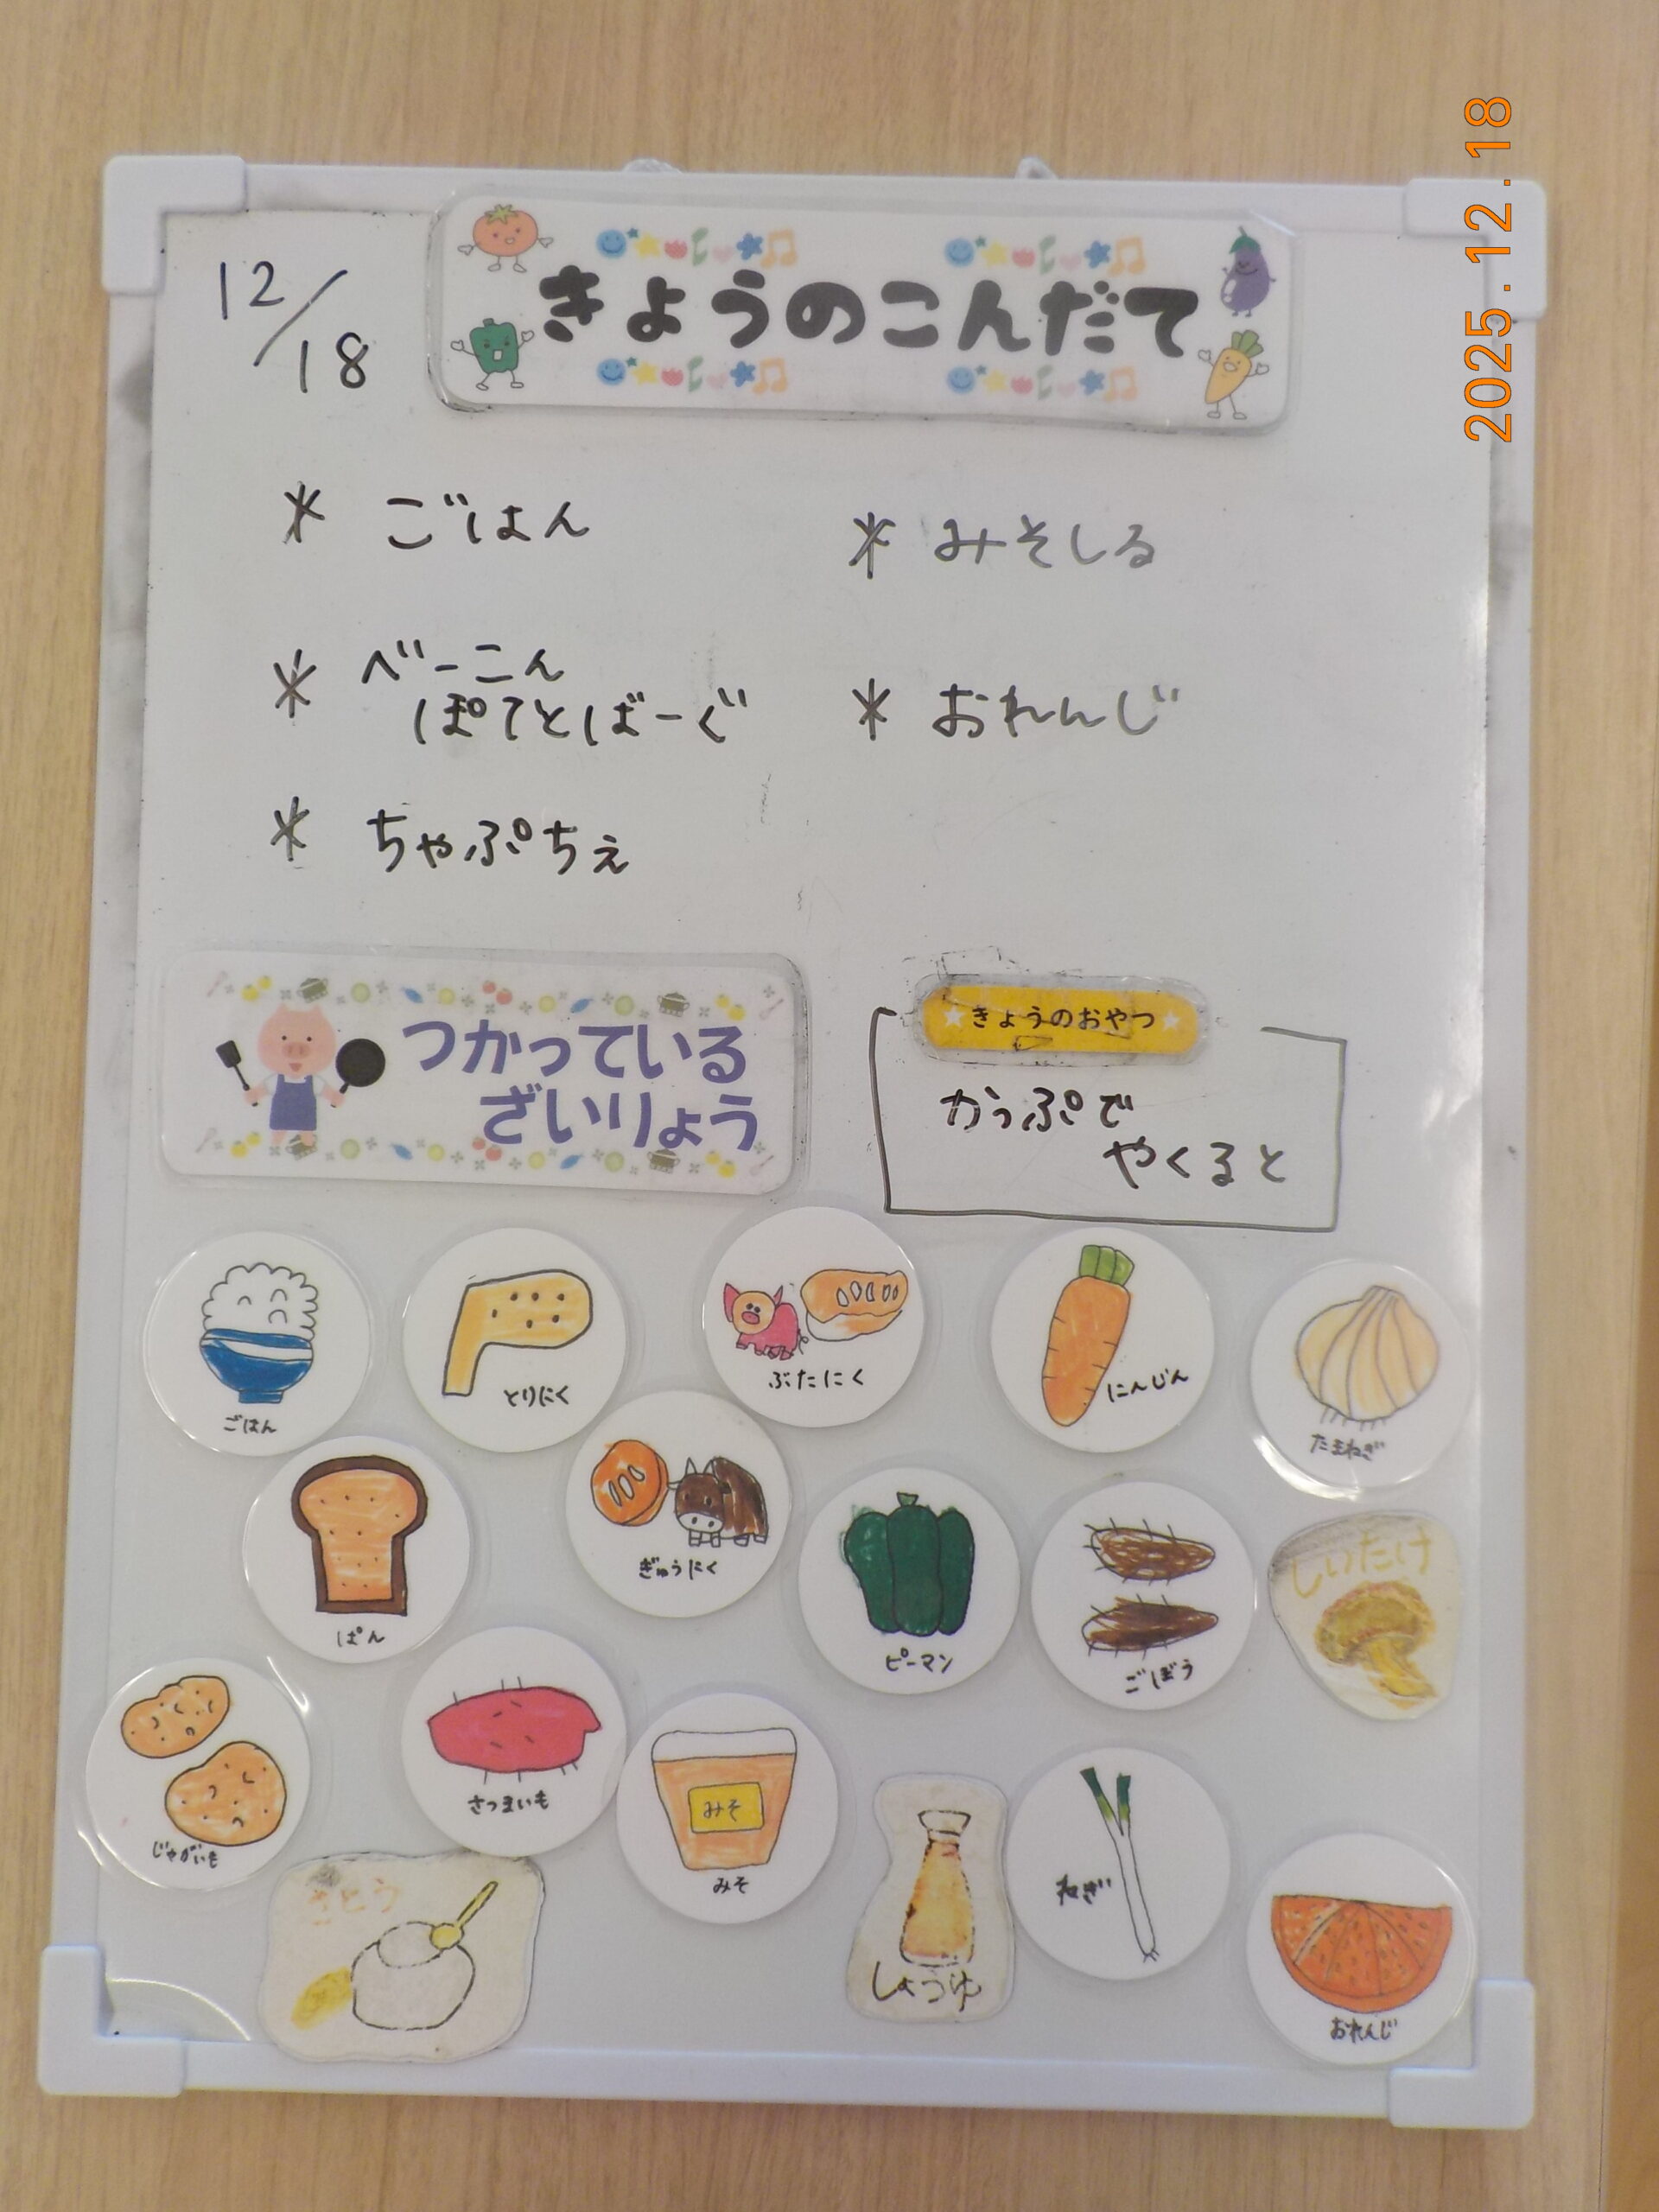 12/18
きょうのこんだて
2025.12.18
* ごはん
* べーこん
ぽてとばーぐ
* ちゃぷちぇ
* みそしる
* おれんじ
つかっている
ざいりょう
きょうのおやつ
かっぷで
やくると
ごはん
とりにく
ぶたにく
にんじん
たまねぎ
ぱん
ぎゅうにく
ピーマン
ごぼう
しいたけ
じゃがいも
さつまいも
みそ
みそ
ねぎ
さとう
しょうゆ
おれんじ